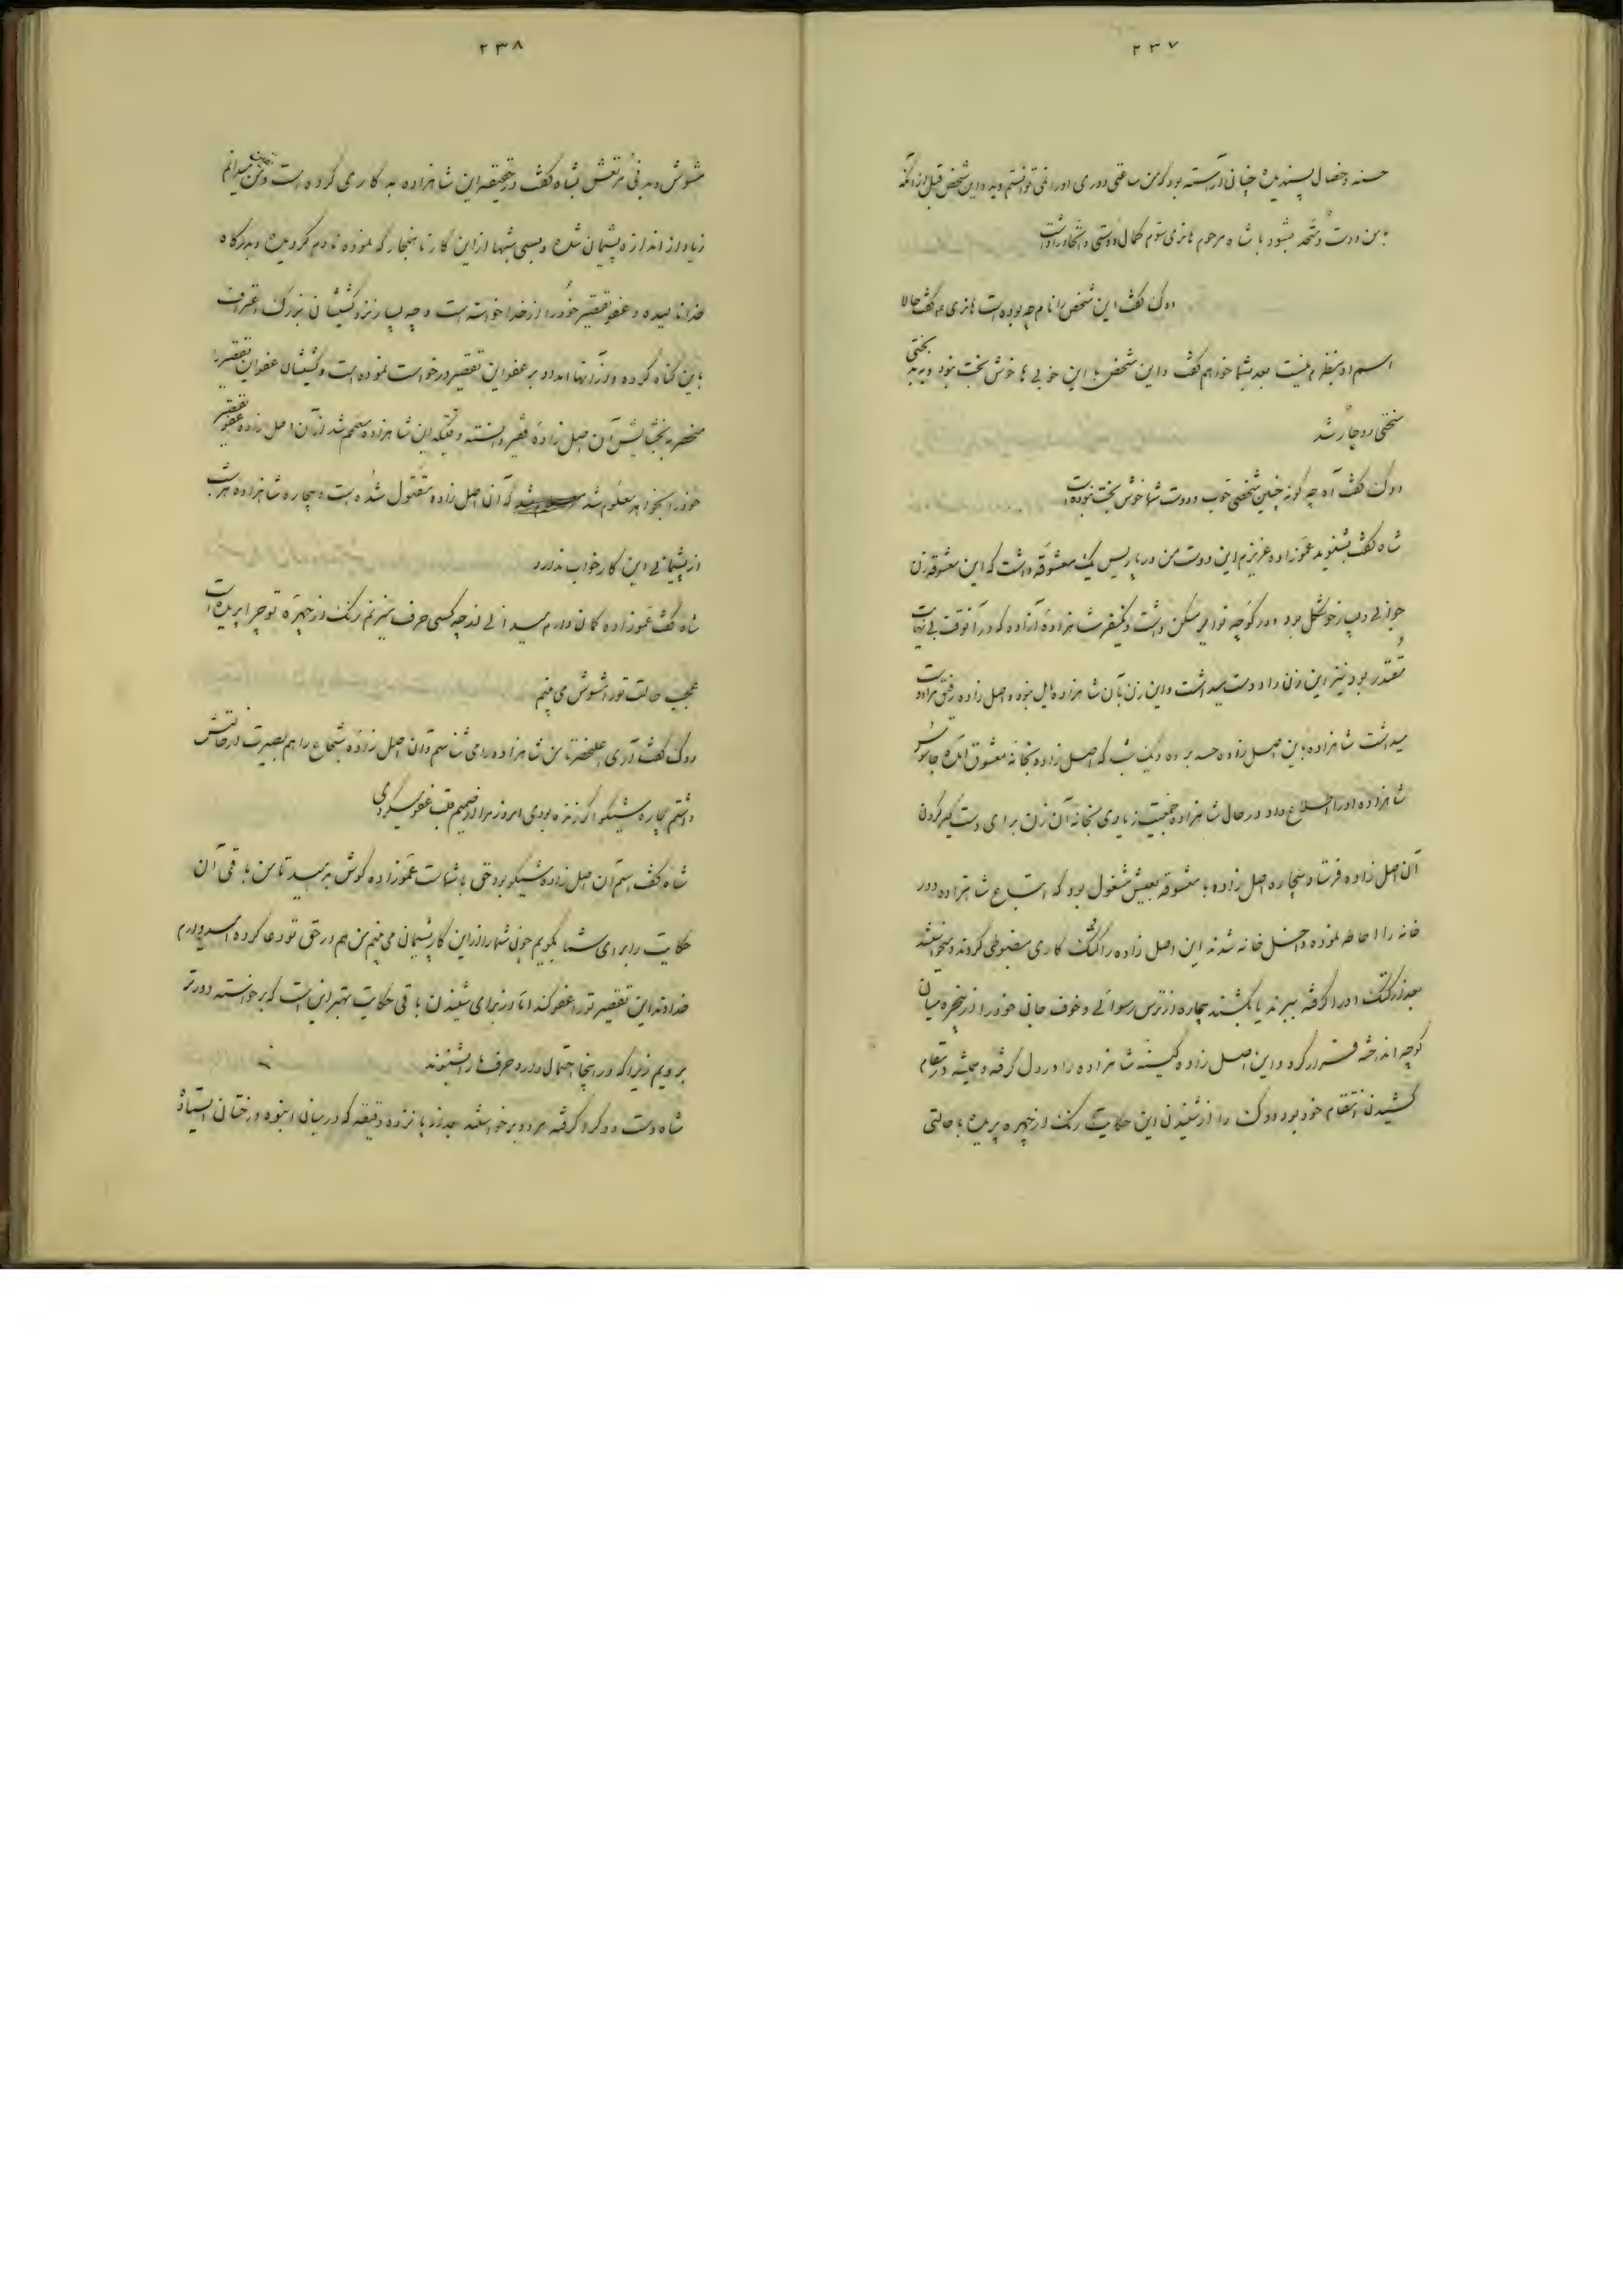 ۲۳۷
حسنه و خصال پسندیده چنان آراسته بود که من ساعتی دوری او را نمی توانستم دید و این شخص قبل از آنکه
با من دوست و متحد بشود با شاه مرحوم هانری سوم کمال دوستی و اتحاد را داشت
دوک گفت این شخص را نام چه بوده است هانری گفت حالا
اسم او بنظرم نیست بعد بشما خواهم گفت و این شخص با این خوبی ها خوش بخت نبود و به بد بختی
سختی دوچار شد
دوک گفت آه چه گونه چنین شخصی خوب و دوست شما خوش بخت نبوده است
شاه گفت بشنوید عموزاده عزیزم این دوست من در پاریس یک معشوقه داشت که این معشوقه زن
جوانی و بسیار خوشگل بود و در کوچه مسکن داشت و یکنفر شاهزاده آزاده که در آنوقت بی نهایت
مقتدر بود نیز این زن را دوست میداشت و این زن بآن شاهزاده مایل نبود و اصل زاده را دوست
میداشت شاهزاده باین اصل زاده حسد برده و یک شب که اصل زاده بخانه معشوق آمده جاسوس
شاهزاده او را اطلاع داد در حال شاهزاده جمعیت زیادی بخانه آن زن برای دست گیر کردن
آن اصل زاده فرستاد بیچاره اصل زاده با معشوقه بعیش مشغول بود که اتباع شاهزاده دور
خانه را احاطه نموده داخل خانه شدند این اصل زاده را کتک کاری مضبوطی کردند و میخواستند
بعد از کتک او را گرفته ببرند یا بکشند بیچاره از ترس رسوائی و خوف جانی خود را از پنجره میان
کوچه انداخته فرار کرد و این اصل زاده کینه شاهزاده را در دل گرفته و همیشه در مقام
کشیدن انتقام خود بود دوک را از شنیدن این حکایت رنگ از چهره پریده با حالتی
۲۳۸
مشوش و بدنی مرتعش بشاه گفت در حقیقه این شاهزاده بد کاری کرده است و من یقین میدانم
زیاد از اندازه پشیمان شده و بسی شبها از این کار ناهنجار که نموده نادم گردیده و بدرگاه
خدا نالیده و عفو تقصیر خود را از خدا خواسته است و چه بسیار نزد کشیشان بزرگ اعتراف
باین گناه کرده و از آنها امداد بر عفو این تقصیر درخواست نموده است و کشیشان عفو این تقصیر را
منحصر به بخشایش آن اصل زادۀ فقیر دانسته وقتیکه این شاهزاده مصمم شد از آن اصل زاده عفو تقصیر
خود را بخواهد معلوم شد که آن اصل زاده مقتول شده است و بیچاره شاهزاده هر شب
از پشیمانی این کار خواب ندارد
شاه گفت عموزاده گمان دارم میدانی از چه کسی حرف میزنم رنگ از چهره تو چرا پریده است
عجب حالت تو را مشوش می بینم
دوک گفت آری اعلیحضرتا من شاهزاده را می شناسم و آن اصل زاده شجاع را هم بصیرت در حالتش
داشتم بیچاره شیکو اگر زنده بودی امروز مرا از صمیم قلب عفو میکردی
شاه گفت اسم آن اصل زاده شیکو بود حق با شماست عموزاده گوش بدهید تا من باقی آن
حکایت را برای شما بگویم چون شما را از این کار پشیمان می بینم من هم در حق تو دعا کرده امیدوارم
خداوند این تقصیر تو را عفو کند اما از برای شنیدن باقی حکایت بهتر این است که برخواسته دورتر
برویم زیرا که در اینجا احتمال دارد حرفها را بشنوند
شاه دست دوک را گرفته هر دو برخواستند بعد از پانزده دقیقه که در میان انبوه درختان ایستاده